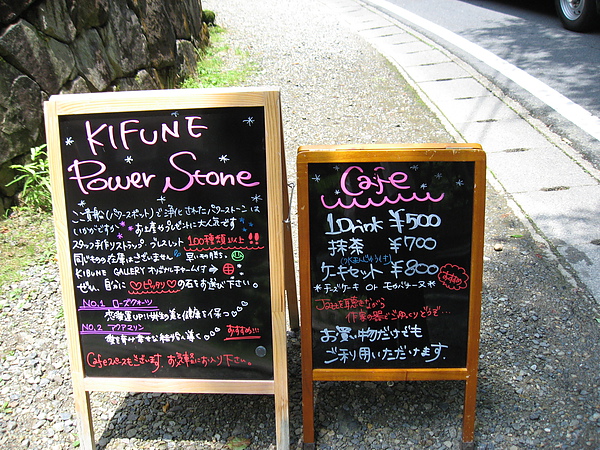 KIFUNE
Power Stone
ここ貴船(パワースポット)で浄化されたパワーストーンは
いかがですか? お土産やプレゼントに大人気です
スタッフ手作りストラップ、ブレスレット 100種類以上!!
同じものの在庫はございません 早い者勝ち
KIBUNE GALLERY オリジナルチャーム付
ぜひ、自分にピッタリの石をお選び下さい。
NO.1 ローズクォーツ
恋愛運UP!!
NO.2 アクアマリン
おすすめ!!!
Cafeスペースもございます。お気軽にお入り下さい。
Cafe
1Drink ¥500
抹茶 ¥700
ケーキセット ¥800
おすすめ
*チーズケーキ or モカババロア*
Jazzを聴きながら
作家の器でごゆっくりどうぞ...
お買い物だけでも
ご利用いただけます.